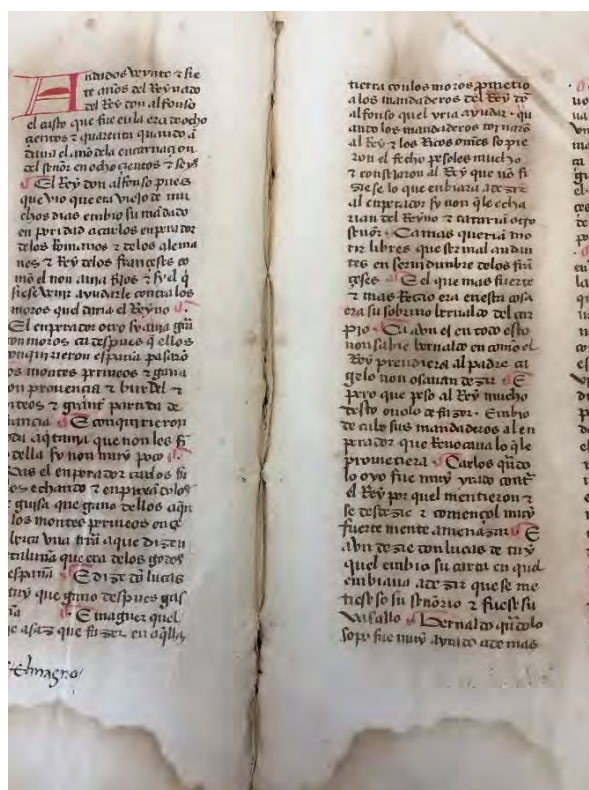 Andados veynte & sie
te años del Reynado
del Rey don alfonso
el casto que fue en la era de ocho
çientos & quarenta quando a
daua el año de la encarnaçion
del señor en ochoçientos & seys
El Rey don alfonso pues
que vio que era viejo de mu
chos dias embio su mādado
en poridad a carlos enperador
delos Romanos & delos alema
nes & Rey delos françeses co
mo el non auia fijos & sy el q̄
siese venir ayudarle contra los
moros quel daria el Reyno
El enperador otro sy auia grāt
con moros ca despues q̄ ellos
conquirieron españa pasarō
os montes perineos & gana
on prouençia & burdel &
teos & grant partida de
rançia E conquirieron
da aquitania que non les fi
della sy non muy poco
Cas el enperador carlos fu
os echando & enpuxādolos
guisa que gano dellos aqui
los montes perineos en çe
lerica vna trrā a que dizen
taluña que era delos godos
españa E dize dō lucas
tuy que gano despues gas
ña E maguer quel
e asaz que fazer en aq̄lla
el magno
tierra con los moros prometio
a los mandaderos del Rey dō
alfonso quel yria ayudar · qu
ando los mandaderos tornarō
al Rey & los Ricos omēs sopie
ron el fecho pesoles mucho
& consejaron al Rey que no fi
ziese lo que enbiara a dezir
al enperador sy non q̄le echa
rian del Reyno & catariā otro
señor · Ca mas querian mo
rir libres que ser mal andan
tes en seruidunbre delos frā
çeses E el que mas fuerte
& mas Rezio era en esta cosa
era su sobrino bernaldo del car
pio · Ca avn el en todo esto
non sabie bernaldo en como el
Rey prendiera al padre ca
gelo non osauan dezir E
pero que peso al Rey mucho
desto ouolo de fazer · Enbio
de cabo sus mandaderos al en
perador que Reuocaua lo q̄le
prometiera Carlos q̄ndo
lo oyo fue muy yrado contra
el Rey por quel mentieron &
se desdezie & començol muy
fuerte mente amenazar E
avn dezie don lucas de tuy
quel enbio su carta en quel
enbiaua a dezir que se me
tiese so su señorio & fuese su
vasallo Bernaldo q̄ndolo
sopo fue muy ayrado ademas